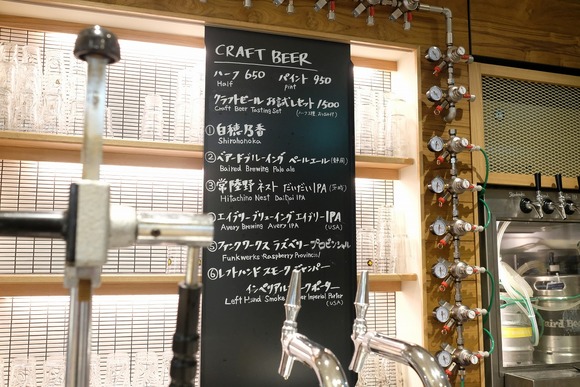 CRAFT BEER
ハーフ 650 パイント 950
Half pint
クラフトビール お試しセット 1500
Craft Beer Tasting Set
① 白穂乃香
Shirohonoka
② ベアードブルーイング ペールエール (静岡)
Baired Brewing Pale ale
③ 常陸野 ネスト だいだい IPA (茨城)
HiTachino Nest Daidai IPA
④ エイブリーブリューイング エイブリー IPA
Avery Brewing Avery IPA (USA)
⑤ ファンクワークス ラズベリー プロビンシャル
Funkwerks Raspberry Provincial (USA)
⑥ レフトハンド スモーク ジャンパー
インペリアル ポーター
Left Hand Smoke Imperial Porter
(USA)